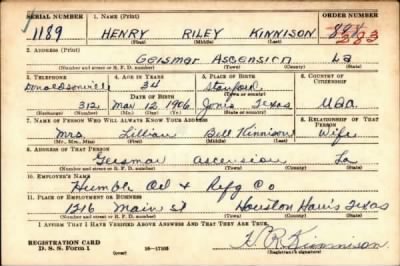 SERIAL NUMBER 1. NAME (Print) ORDER NUMBER
1189 HENRY RILEY KINNISON
(First) (Middle) (Last) 283
2. ADDRESS (Print)
Geismar Ascension La
(Number and street or R. F. D. number) (Town) (County) (State)
3. TELEPHONE 4. AGE IN YEARS 5. PLACE OF BIRTH 6. COUNTRY OF CITIZENSHIP
Donaldsonville 34 Stanford
DATE OF BIRTH (Town or county)
312 May 12 1906 Texas USA
(Exchange) (Number) (Mo.) (Day) (Yr.) (State or country)
7. NAME OF PERSON WHO WILL ALWAYS KNOW YOUR ADDRESS 8. RELATIONSHIP OF THAT PERSON
Mrs Lillian Bell Kinnison Wife
(Mr., Mrs., Miss) (First) (Middle) (Last)
9. ADDRESS OF THAT PERSON
Geismar ascension La
(Number and street or R. F. D. number) (Town) (County) (State)
10. EMPLOYER'S NAME
Humble Oil & Refg Co
11. PLACE OF EMPLOYMENT OR BUSINESS
1216 Main st Houston Harris Texas
(Number and street or R. F. D. number) (Town) (County) (State)
I AFFIRM THAT I HAVE VERIFIED ABOVE ANSWERS AND THAT THEY ARE TRUE.
REGISTRATION CARD
D. S. S. Form 1 (over) H. R. Kinnison
(Registrant's signature)